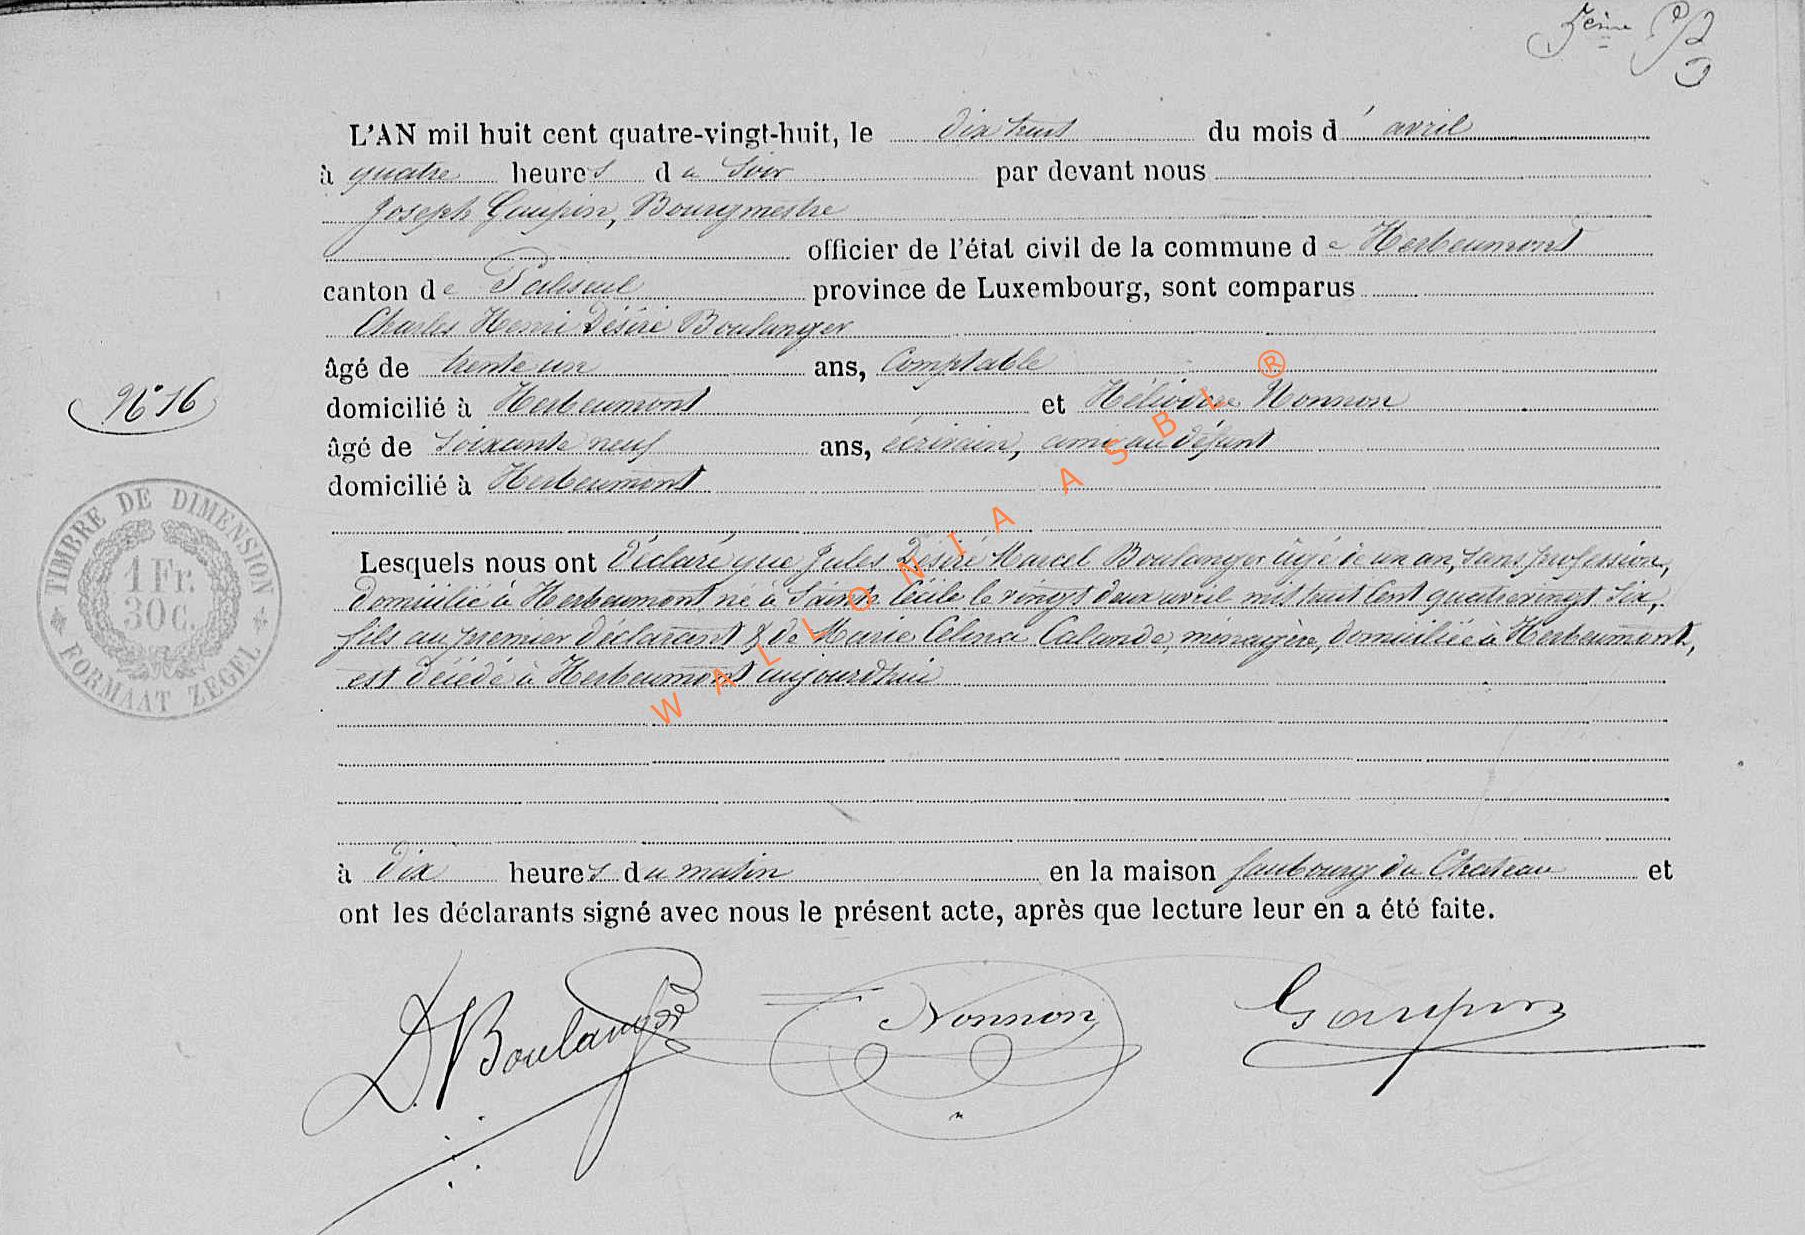 5ème
L'AN mil huit cent quatre-vingt-huit, le dix huit du mois d'avril
à quatre heures du soir par devant nous
Joseph Goupin, Bourgmestre
officier de l'état civil de la commune de Herbeumont
canton de Paliseul province de Luxembourg, sont comparus
Charles Henri Désiré Boulanger
âgé de trente un ans, Comptable
domicilié à Herbeumont et Héliodore Nonnon
N° 16
âgé de soixante neuf ans, écrivain, ami au défunt
domicilié à Herbeumont
Lesquels nous ont déclaré que Jules Désiré Marcel Boulanger âgé de un an, sans profession,
domicilié à Herbeumont né à Sainte Cécile le vingt deux avril mil huit cent quatre vingt six,
fils au premier déclarant & de Marie Celina Calande, ménagère, domiciliée à Herbeumont,
est décédé à Herbeumont aujourd'hui
à dix heures du matin en la maison faubourg du Chateau et
ont les déclarants signé avec nous le présent acte, après que lecture leur en a été faite.
TIMBRE DE DIMENSION
1 Fr.
30 c.
FORMAAT ZEGEL
D. Boulanger Nonnon Goupin
WALLONIA ASBL ®